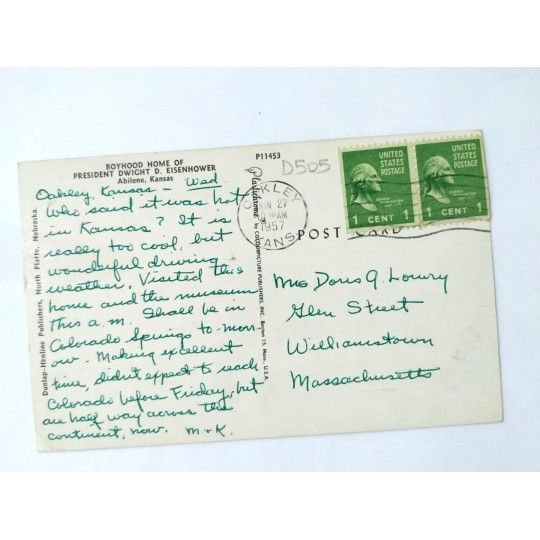 BOYHOOD HOME OF
PRESIDENT DWIGHT D. EISENHOWER
Abilene, Kansas
Oakley, Kansas – Wed.
Who said it was hot
in Kansas? It is
really too cool, but
wonderful driving
weather. Visited this
home and the museum
this a.m. Shall be in
Colorado Springs to-mor-
ow. Making excellent
time, didn't expect to reach
Colorado before Friday, but
are half way across the
continent, now. M + K.
Dunlap-Henline Publishers, North Platte, Nebraska
P11453
D505
Plastichrome by COLOURPICTURE PUBLISHERS, INC. Boston 15, Mass., U.S.A.
OAKLEY
JUN 27
AM
1957
KANS
UNITED
STATES
POSTAGE
1 CENT 1
UNITED
STATES
POSTAGE
1 CENT 1
POST CARD
Mrs Doris G. Lowry
Glen Street
Williamstown
Massachusetts